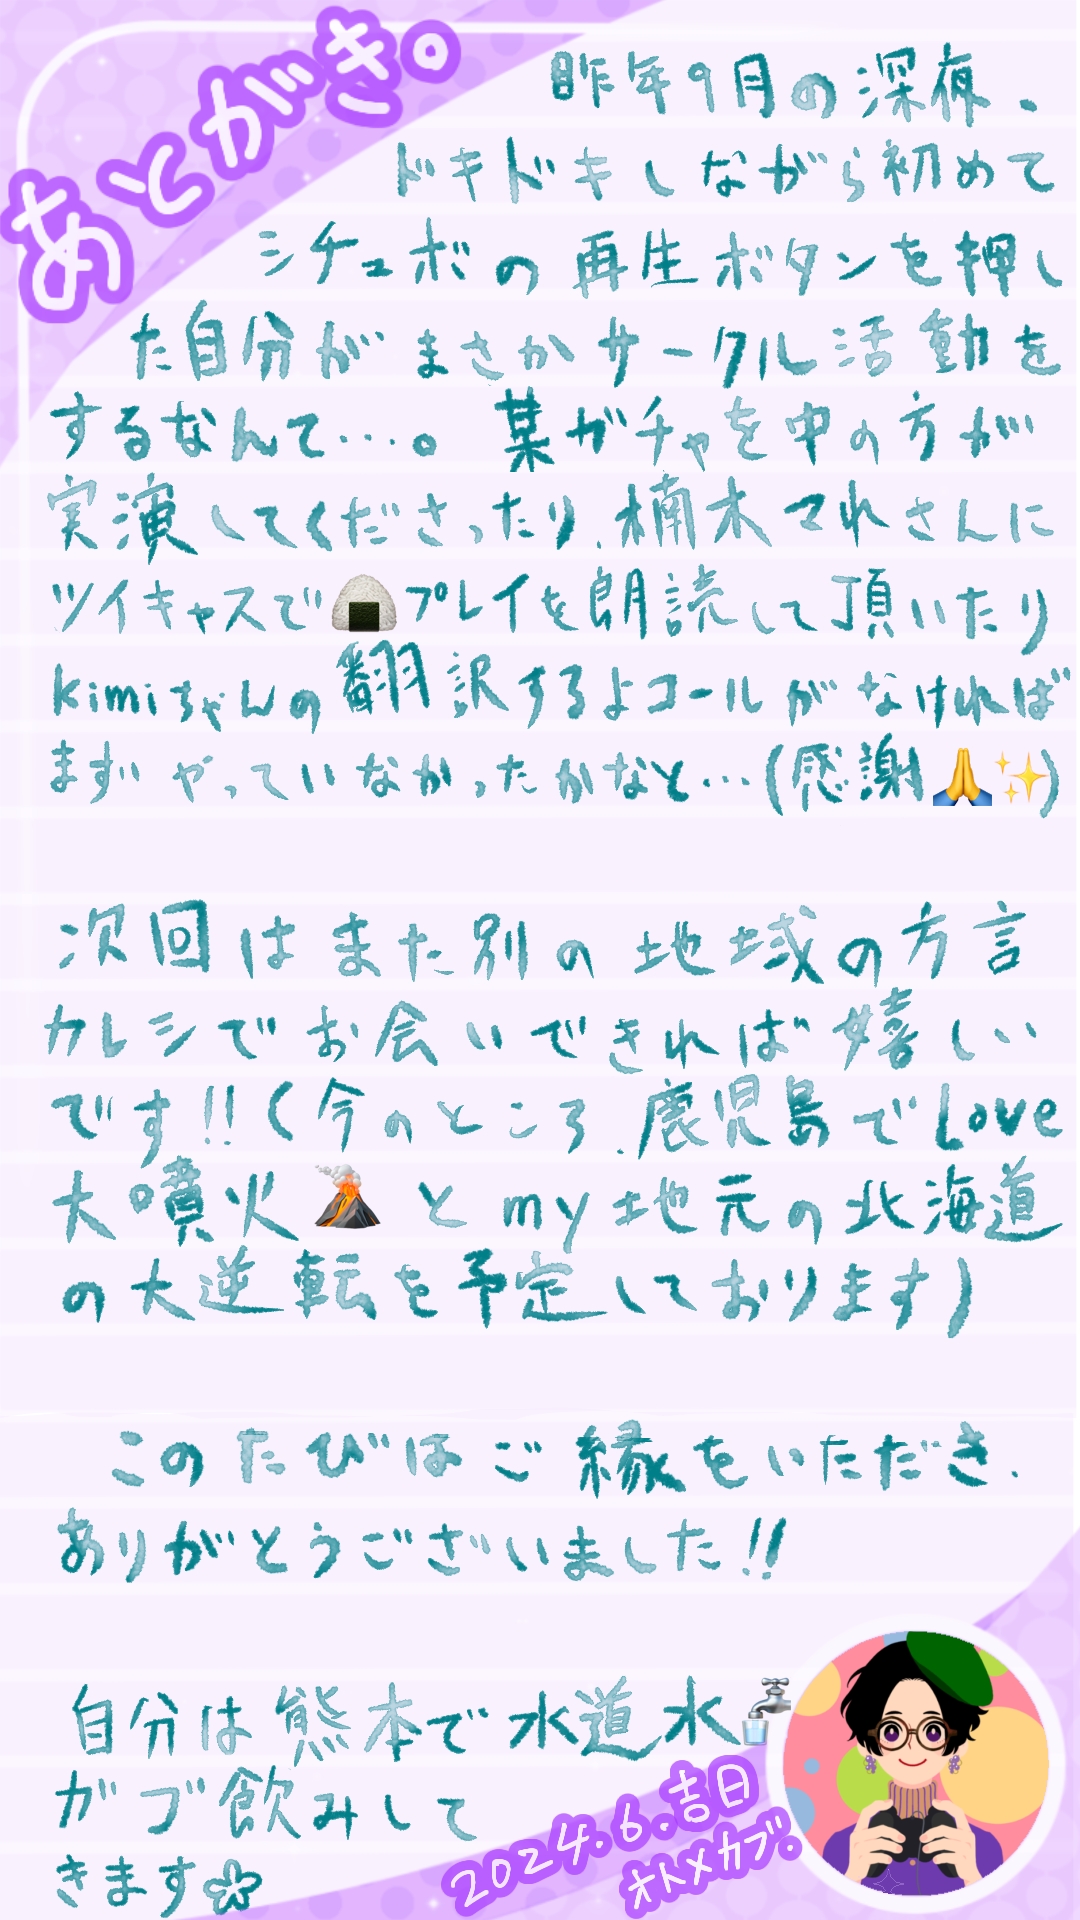 あとがき。
昨年9月の深夜、
ドキドキしながら初めて
シチュボの再生ボタンを押し
た自分がまさかサークル活動を
するなんて…。葉ガチャを中の方が
実演してくださったり、楠木マれさんに
ツイキャスで🍙プレイを朗読して頂いたり
kimiちゃんの翻訳するよコールがなければ
まずやっていなかったかなと…(感謝🙏✨)
次回はまた別の地域の方言
カレシでお会いできれば嬉しい
です!!(今のところ、鹿児島でLove
大噴火🌋とmy地元の北海道
の大逆転を予定しております)
このたびはご縁をいただき、
ありがとうございました!!
自分は熊本で水道水🚰
ガブ飲みして
きます✿
2024.6.吉日
オトメカブ。